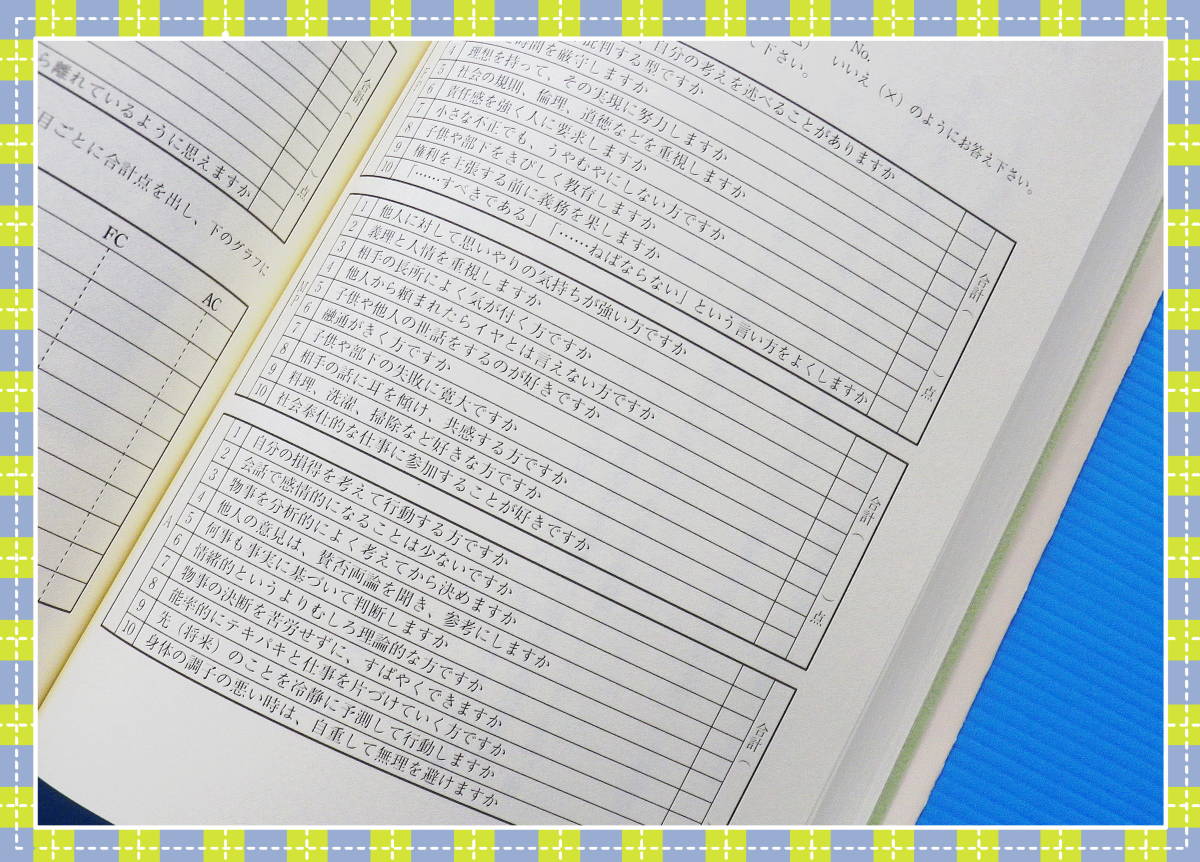 ら離れているように思えますか
合計（　）点
目ごとに合計点を出し、下のグラフに
FC
AC
No.
いいえ（×）のようにお答え下さい。
下さい。
自分の考えを述べることがありますか
批判する型ですか
時間を厳守しますか
4 理想を持って、その実現に努力しますか
5 社会の規則、倫理、道徳などを重視しますか
6 責任感を強く人に要求しますか
7 小さな不正でも、うやむやにしない方ですか
8 子供や部下をきびしく教育しますか
9 権利を主張する前に義務を果しますか
10 「……すべきである」「……ねばならない」という言い方をよくしますか
合計（　）点
1 他人に対して思いやりの気持ちが強い方ですか
2 義理と人情を重視しますか
3 相手の長所によく気が付く方ですか
4 他人から頼まれたらイヤとは言えない方ですか
5 子供や他人の世話をするのが好きですか
6 融通がきく方ですか
7 子供や部下の失敗に寛大ですか
8 相手の話に耳を傾け、共感する方ですか
9 料理、洗濯、掃除など好きな方ですか
10 社会奉仕的な仕事に参加することが好きですか
合計（　）点
A
1 自分の損得を考えて行動する方ですか
2 会話で感情的になることは少ないですか
3 物事を分析的によく考えてから決めますか
4 他人の意見は、賛否両論を聞き、参考にしますか
5 何事も事実に基づいて判断しますか
6 情緒的というよりむしろ理論的な方ですか
7 物事の決断を苦労せずに、すばやくできますか
8 能率的にテキパキと仕事を片づけていく方ですか
9 先（将来）のことを冷静に予測して行動しますか
10 身体の調子の悪い時は、自重して無理を避けますか
合計（